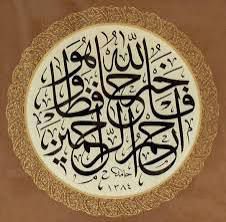 فالله خير حافظا وهو ارحم الراحمين
حامد
١٣٨٤